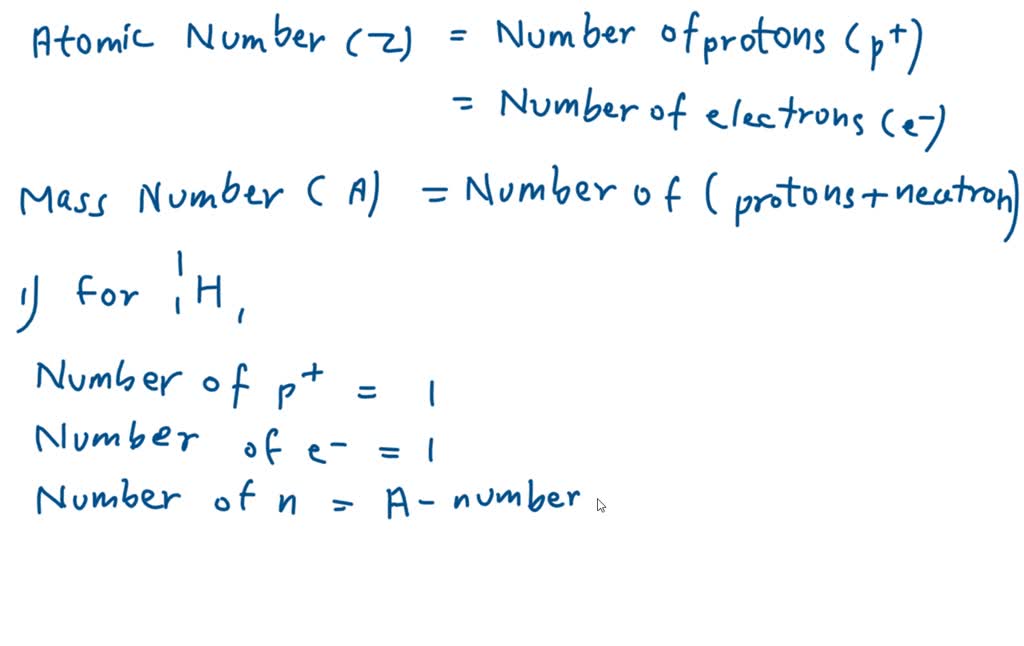 Atomic Number (Z) = Number of protons (p⁺)
= Number of electrons (e⁻)
Mass Number (A) = Number of (protons + neutron)
1) for ¹₁H,
Number of p⁺ = 1
Number of e⁻ = 1
Number of n = A - number